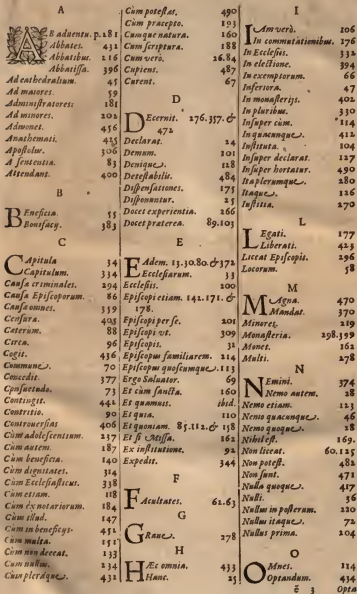 A
AB aduentu. p. 281
Abbates. 431
Abbatibus. 216
Abbatissa. 396
Ad cathedralium. 45
Ad maiores. 59
Administratores: 181
Ad minores. 202
Admonet. 456
Anathemati. 425
Apostolus. 306
A sententia. 83
Attendant. 400
B
Beneficia. 55
Bonifacij. 383
C
Capitula 34
Capitulum. 334
Causa criminales. 294
Causa Episcoporum. 86
Causa omnes. 359
Censura. 405
Caterùm. 88
Circa. 96
Cogit. 436
Commune. 70
Concedit. 377
Consuetudo. 73
Contingit. 442
Contritio. 90
Controuersias 406
Cùm adolescentum. 237
Cùm autem. 187
Cùm beneficia. 140
Cùm dignitates. 314
Cùm Ecclesiasticus 338
Cùm etiam. 118
Cùm ex notariorum. 184
Cùm illud. 147
Cùm in beneficijs. 452
Cùm multa. 151
Cùm non deceat. 133
Cùm nullus. 234
Cùm pleraque. 432
Cùm potestas. 490
Cùm præcepto. 193
Cumque natura. 160
Cùm scriptura. 188
Cùm verò. 26.84
Cupiens. 487
Curent. 67
D
Decernit. 276.357. &
472
Declarat. 24
Demum. 101
Denique. 128
Detestabilis. 484
Dispensationes. 175
Disponuntur. 25
Docet experientia. 266
Docet præterea. 89.103
E
EAdem. 13.30.80.&372
Ecclesiarum. 33
Ecclesijs. 200
Episcopi etiam. 142.171. &
178.
Episcopi per se. 201
Episcopi vt. 309
Episcopis. 31
Episcopus familiarem. 214
Episcopus quoscumque. 113
Ergo Saluator. 69
Et cùm sancta. 160
Et quamuis. ibid.
Et quia. 110
Et quoniam. 85.112. & 158
Et si Missa. 162
Ex institutione. 92
Expedit. 344
F
Facultates. 62.63
G
Graue. 278
H
HÆc omnia. 433
Hanc. 25
I
IAm verò. 106
In commutationibus. 176
In Ecclesijs. 332
In electione. 394
In exemptorum. 66
Inferiora. 47
In monasterijs. 402
In pluribus. 330
Insuper cùm. 114
In quacumque. 412
Instituta. 104
Insuper declarat. 127
Insuper hortatur. 490
Itaplerumque. 280
Itaque. 126
Iustitia. 270
L
Legati. 177
Liberati. 423
Liceat Episcopis. 296
Locorum. 58
M
MAgna. 470
Mandat. 370
Minores. 219
Monasteria. 298.399
Monet. 162
Multi. 278
N
NEmini. 374
Nemo autem. 28
Nemo etiam. 123
Nemo quacunque. 46
Nemo quoque. 28
Nihil est. 169.
Non liceat. 60.125
Non potest. 482
Non sunt. 471
Nulla quoque. 417
Nulli. 56
Nullus in posterum. 210
Nullus itaque. 72
Nullus prima. 204
O
OMnes. 114
Optandum. 434
é 3 Opta